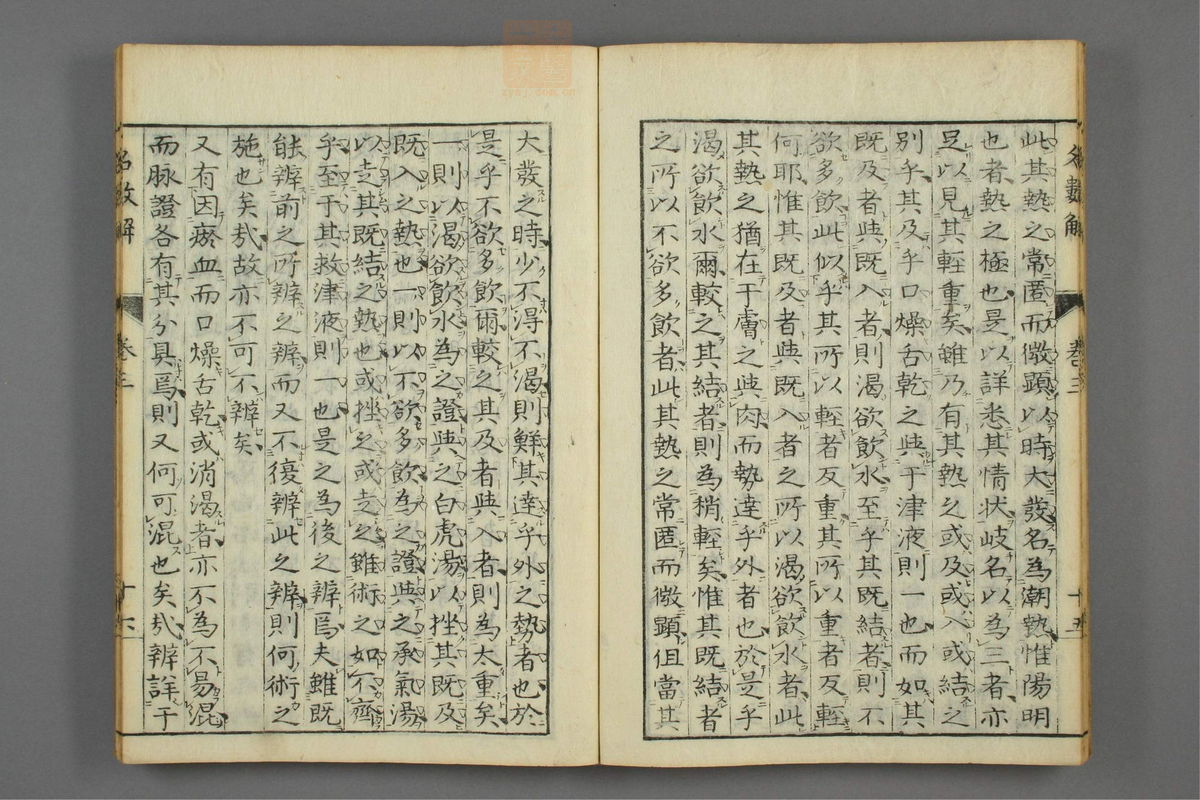 此其熱之常匿而微顕以時大發名為潮熱惟陽明
也者熱之極也是以詳悉其情状岐名以為三者亦
足以見其輕重矣雖乃有其熱之或及或入或結之
別乎其及乎口燥舌乾之與于津液則一也而如其
既及者與既入者則渴欲飲水至乎其既結者則不
欲多飲此似乎其所以輕者反重其所以重者反輕
何耶惟其既及者與既入者之所以渴欲飲水者此
其熱之猶在于膚之與肉而勢達乎外者也於是乎
渴欲飲水爾較之其結者則為稍輕矣惟其既結者
之所以不欲多飲者此其熱之常匿而微顕但當其
大發之時少不得不渴則鮮其達乎外之勢者也於
是乎不欲多飲爾較之其及者與入者則為太重矣
一則以渴欲飲水為之證與之白虎湯以挫其既及
既入之熱也一則以不欲多飲為之證與之承氣湯
以走其既結之熱也或挫之或走之雖術之如不齊
乎至于其救津液則一也是之為後之辨焉夫雖既
能辨前之所辨之辨而又不復辨此之辨則何術之
施也矣哉故亦不可不辨矣
又有因瘀血而口燥舌乾或消渴者亦不為不易混
而脉證各有其分具焉則又何可混也矣哉辨詳于
卷三
十六